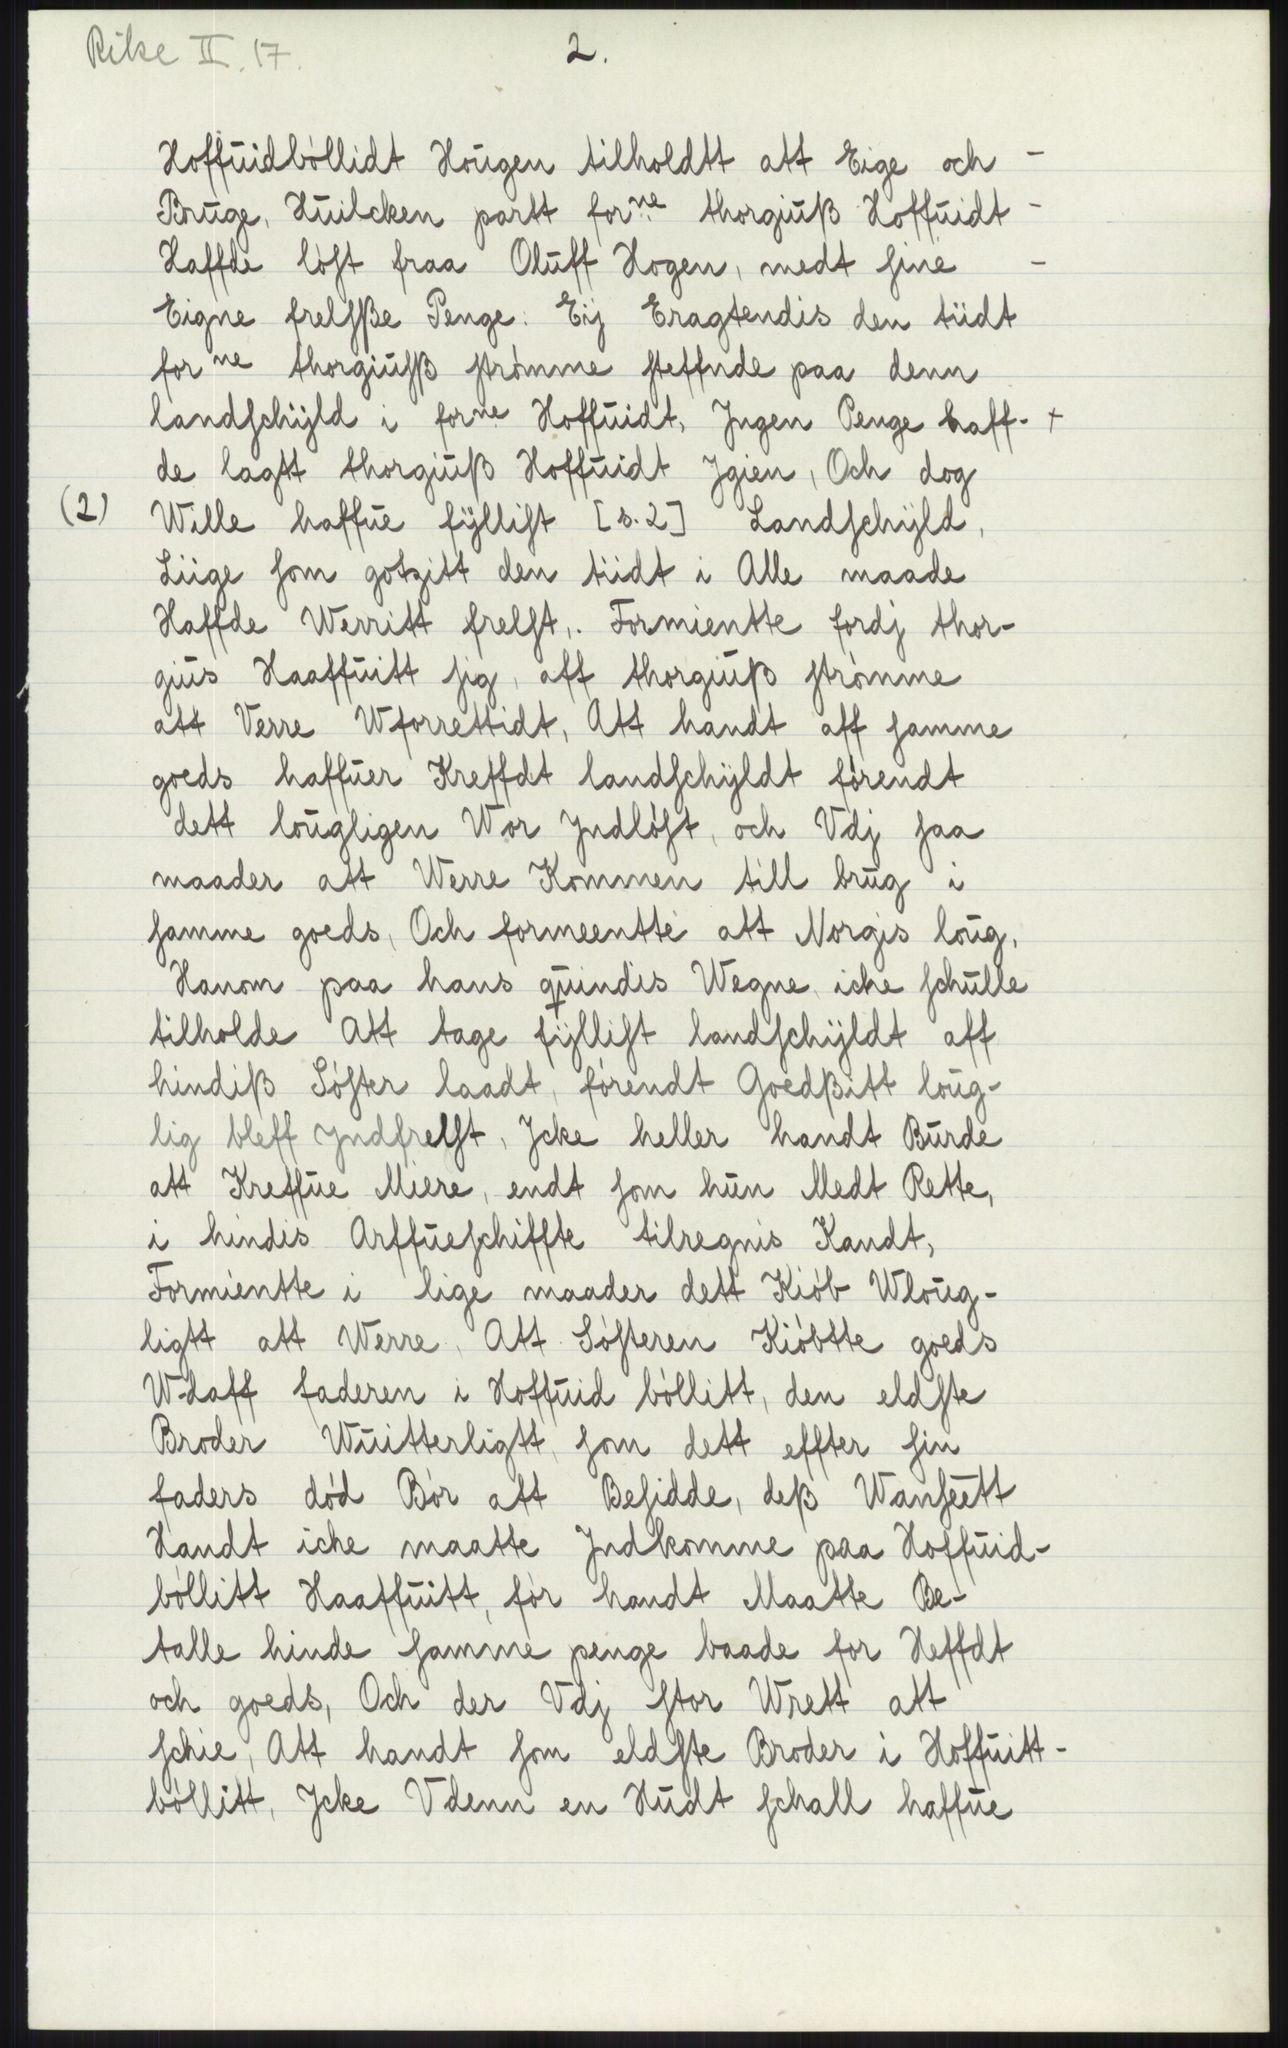 Rike II. 17.
2.
Hoffuidbøllidt Hougen tilholdtt att Eige och -
Bruge, Huilcken partt forne thorgiuß Hoffuidt -
Haffde løst fraa Oluff Hogen, medt sine -
Eigne frelsße Penge: Eij Eragtendis den tiidt
forne thorgiusß strømme steffnde paa denn
landschÿld i forne Hoffuidt, Jngen Penge haff- +
de lagtt thorgiuß Hoffuidt Jgien, Och dog
(2) Wille haffue fÿllist [s.2] Landschÿld,
Liige som gotzitt den tiidt i Alle maade
Haffde Werritt frelst,. Formientte fordj thor-
gius Haaffuitt sig, aff thorgiuß strømme
att Verre Wforrettidt, Att handt aff samme
goeds haffuer Kreffdt landschÿldt førendt
dett lougligen Wor Jndløst, och Vdj saa
maader att Werre Kommen till brug i
samme goeds, Och formeentte att Norgis loug,
Hanom paa hans quindis Wegne icke schulle
tilholde Att tage fÿllist landschÿldt aff
hindiß Søster laadt, førendt Goedßitt loug-
lig bleff Jndfrelst, Jcke heller handt Burde
att Kreffue Miere, endt som hun Medt Rette,
i hindis Arffueschiffte tilregnis Kandt,
Formientte i lige maader dett Kiøb Wloug-
ligtt att Werre, Att Søsteren Kiøbtte goeds
Wdaff faderen i Hoffuid bøllitt, den eldste
Broder Wuitterligtt, som dett effter sin
faders død Bør att Besidde, deß Wanseett
Handt icke maatte Jndkomme paa Hoffuid-
bøllitt Haaffuitt, før handt Maatte Be-
talle hinde samme penge baade for Heffdt
och goeds, Och der Vdj stor Wrett att
schie, Att handt som eldste Broder i Hoffuitt-
bøllitt, Jcke Vdenn en Hudt schall haffue